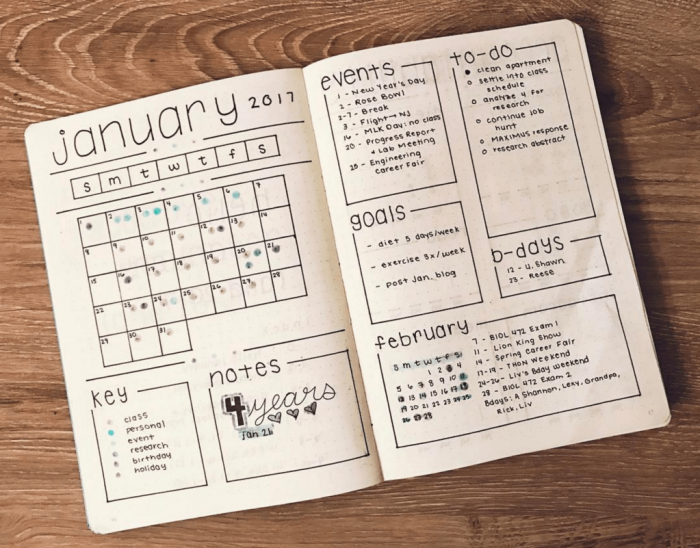 january 2017
s m t w t f s
1 2 3 4 5 6 7
8 9 10 11 12 13 14
15 16 17 18 19 20 21
22 23 24 25 26 27 28
29 30 31
key
class
personal
event
research
birthday
holiday
notes
4 years
Jan 26
events
1 - New Year's Day
2 - Rose Bowl
2-7 - Break
3 - Flight → NJ
16 - MLK Day: no class
20 - Progress Report
& Lab Meeting
25 - Engineering
career Fair
to-do
clean apartment
settle into class
schedule
analyze 4 for
research
continue job
hunt
MAXIMUS response
research abstract
goals
- diet 5 days/week
- exercise 3x/week
- post Jan. blog
b-days
12 - U. Shawn
23 - Reese
february
s m t w t f s
1 2 3 4
5 6 7 8 9 10 11
12 13 14 15 16 17 18
19 20 21 22 23 24 25
26 27 28
7 - BIOL 472 Exam 1
11 - Lion King Show
14 - Spring Career Fair
17-19 - THON Weekend
24-26 - Liv's Bday Weekend
28 - BIOL 472 Exam 2
Bdays: A Shannon, Lexy, Grandpa,
Rick, Liv